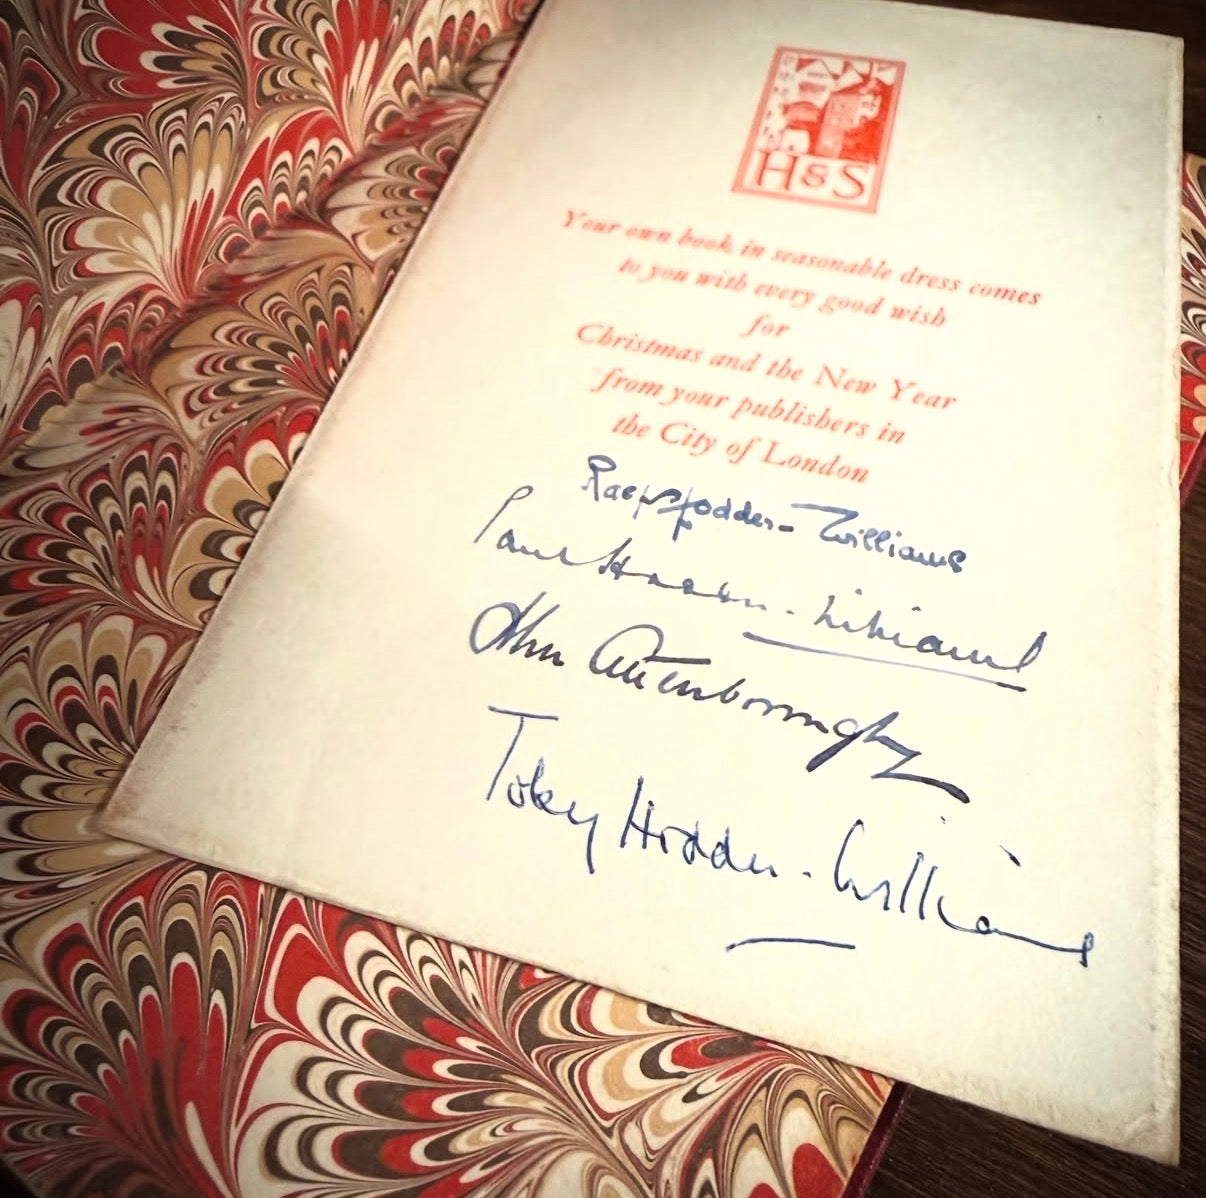 H&S
Your own book in seasonable dress comes
to you with every good wish
for
Christmas and the New Year
from your publishers in
the City of London
Ralph Hodder-Williams
Paul Hodder-Williams
John Attenborough
Toby Hodder-Williams